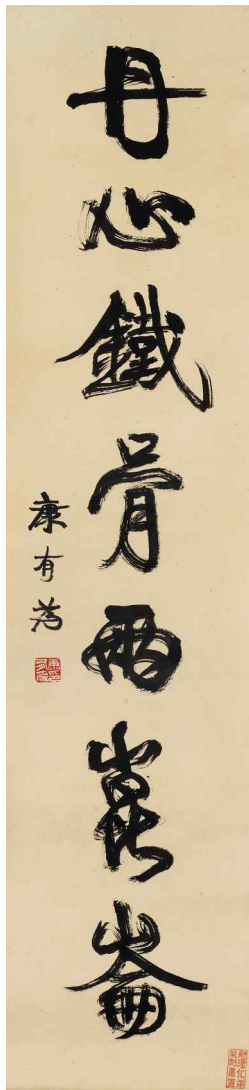 丹心鐵骨兩崑崙
康有為